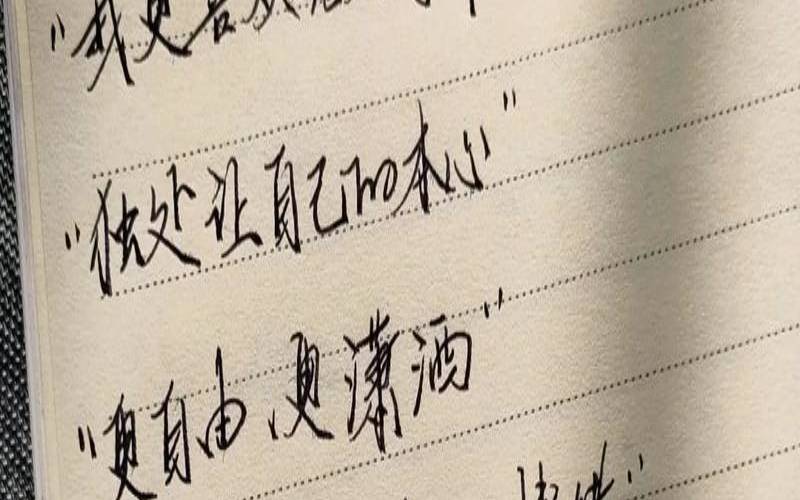 "我更喜欢
"独处让自己的本心"
"更自由、更潇洒"